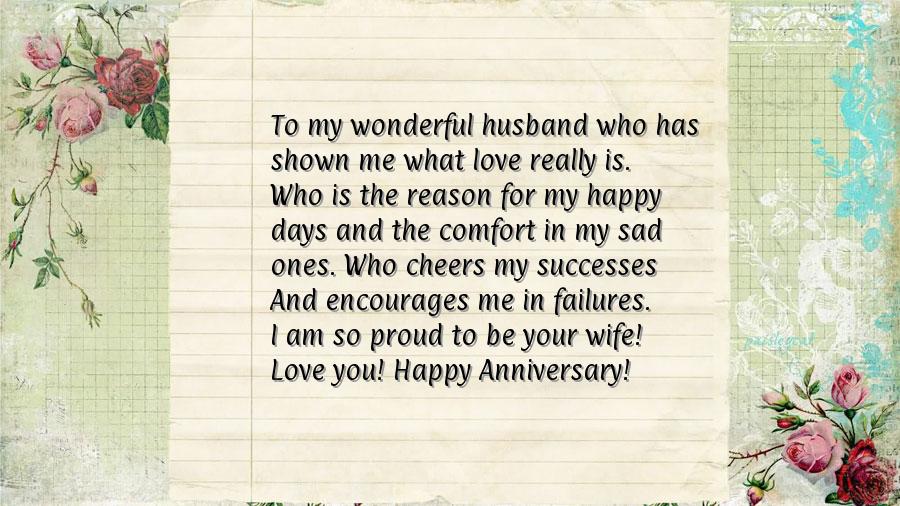 To my wonderful husband who has
shown me what love really is.
Who is the reason for my happy
days and the comfort in my sad
ones. Who cheers my successes
And encourages me in failures.
I am so proud to be your wife!
Love you! Happy Anniversary!
paisleycat